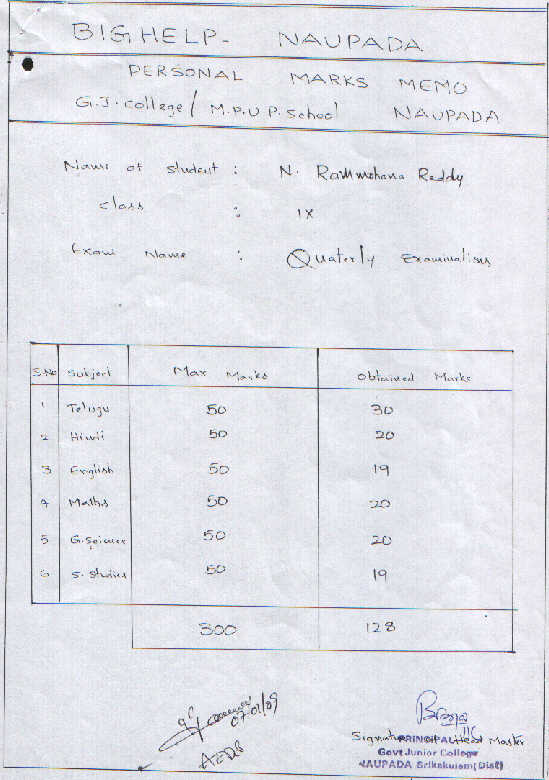 BIGHELP- NAUPADA
PERSONAL MARKS MEMO
G.J. College / M.P.U.P. School NAUPADA
Name of student : N. Rammohana Reddy
Class : IX
Exam Name : Quaterly Examinations
S.No Subject Max Marks Obtained Marks
1 Telugu 50 30
2 Hindi 50 20
3 English 50 19
4 Maths 50 20
5 G.Science 50 20
6 S. Studies 50 19
300 128
07.01/09
Signature Head Master
PRINCIPAL
Govt Junior College
NAUPADA Srikakulam (Dist)